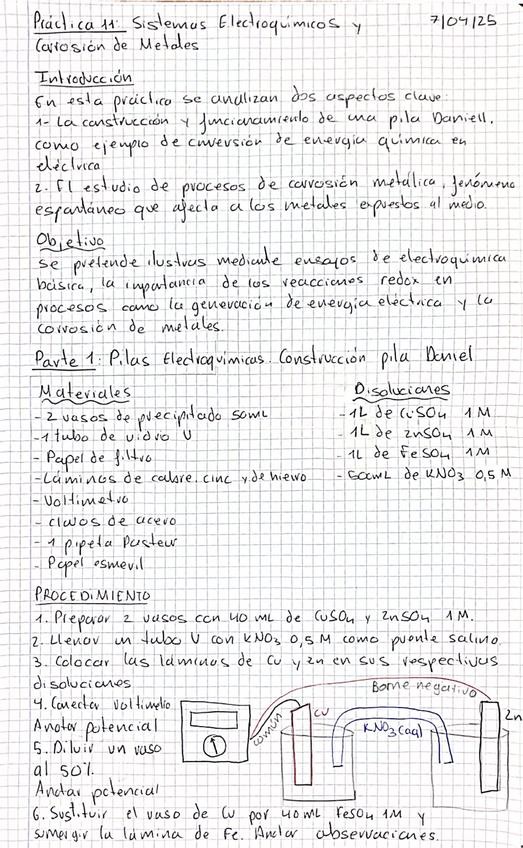 Práctica 11: Sistemas Electroquímicos y
Corrosión de Metales
7/04/25
Introducción
En esta práctica se analizan dos aspectos clave:
1- La construcción y funcionamiento de una pila Daniell,
como ejemplo de conversión de energía química en
eléctrica
2. El estudio de procesos de corrosión metálica, fenómeno
espontáneo que afecta a los metales expuestos al medio.
Objetivo
Se pretende ilustrar mediante ensayos de electroquímica
básica, la importancia de las reacciones redox en
procesos como la generación de energía eléctrica y la
corrosión de metales.
Parte 1: Pilas Electroquímicas. Construcción pila Daniel
Materiales
- 2 vasos de precipitado 50mL
- 1 tubo de vidrio U
- Papel de filtro
- Láminas de cobre, cinc y de hierro
- Voltímetro
- clavos de acero
- 1 pipeta Pasteur
- Papel esmeril
Disoluciones
- 1L de CuSO4 1M
- 1L de ZnSO4 1M
- 1L de FeSO4 1M
- 500mL de KNO3 0,5M
PROCEDIMIENTO
1. Preparar 2 vasos con 40 mL de CuSO4 y ZnSO4 1M.
2. Llenar un tubo U con KNO3 0,5M como puente salino.
3. Colocar las láminas de Cu y Zn en sus respectivas
disoluciones
4. Conectar voltímetro
Anotar potencial
5. Diluir un vaso
al 50%.
Anotar potencial
6. Sustituir el vaso de Cu por 40mL FeSO4 1M y
sumergir la lámina de Fe. Anotar observaciones.
Borne negativo
común
Cu
KNO3(aq)
Zn